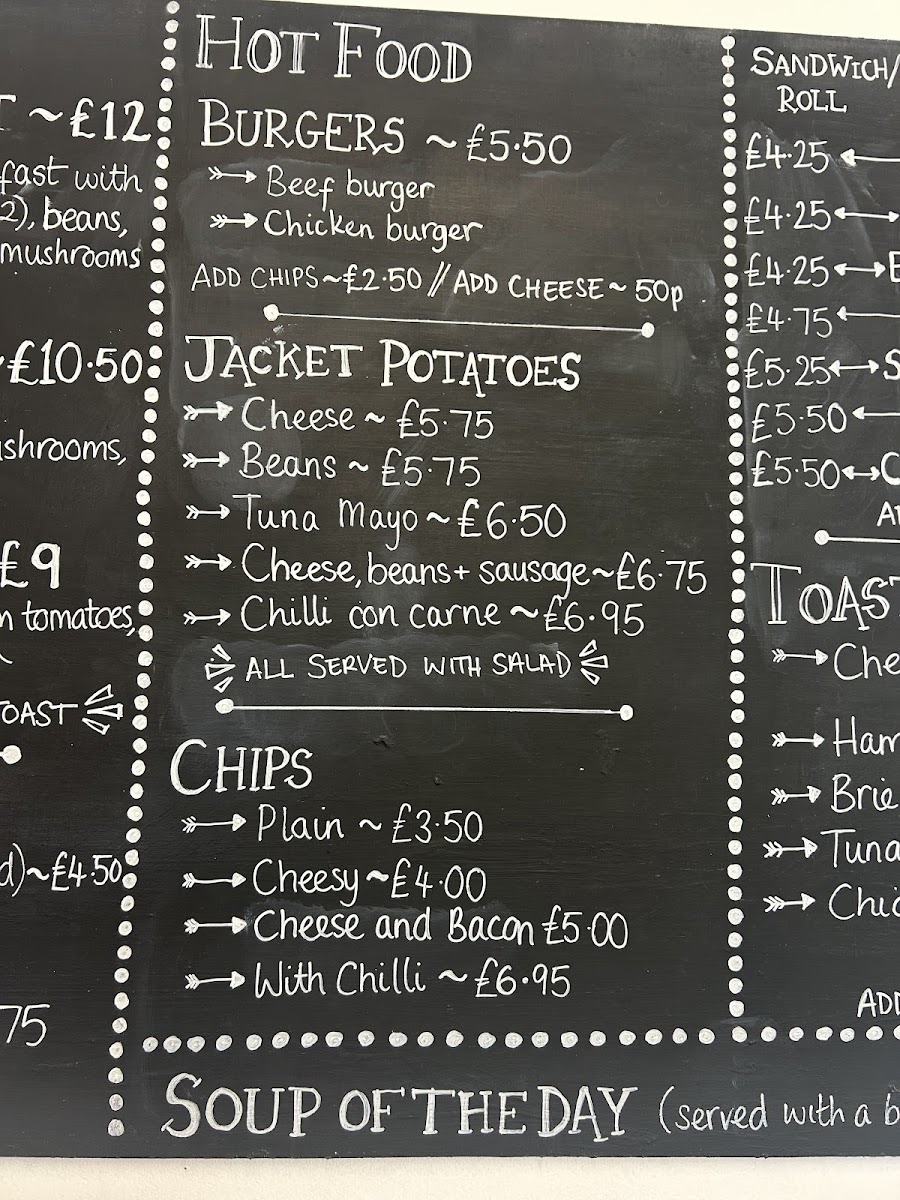 ~£12
fast with
2), beans,
mushrooms
~£10.50
shrooms,
£9
tomatoes,
TOAST
~£4.50
75
HOT FOOD
BURGERS ~ £5.50
Beef burger
Chicken burger
ADD CHIPS ~ £2.50 // ADD CHEESE ~ 50p
JACKET POTATOES
Cheese ~ £5.75
Beans ~ £5.75
Tuna Mayo ~ £6.50
Cheese, beans + sausage ~ £6.75
Chilli con carne ~ £6.95
ALL SERVED WITH SALAD
CHIPS
Plain ~ £3.50
Cheesy ~ £4.00
Cheese and Bacon £5.00
With Chilli ~ £6.95
SANDWICH/
ROLL
£4.25
£4.25
£4.25
£4.75
£5.25
£5.50
£5.50
TOAST
Che
Ham
Brie
Tuna
Chic
ADD
SOUP OF THE DAY (served with a b